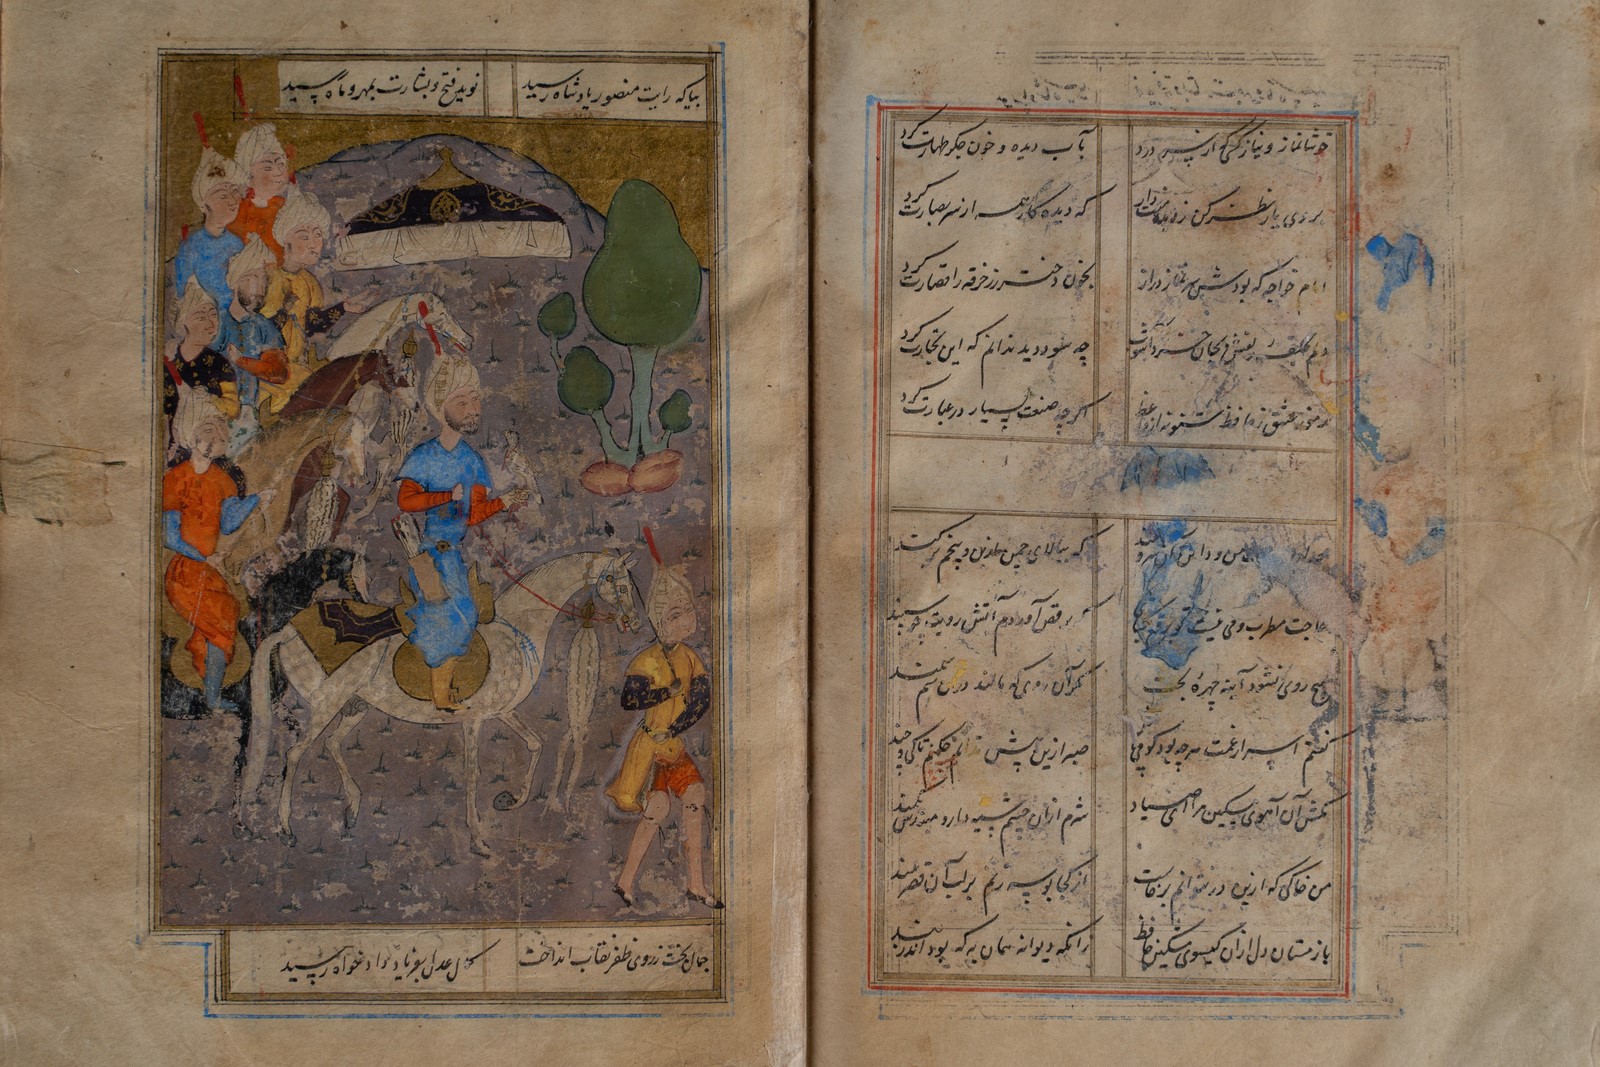 خوشا نماز و نیاز کسی که از سر درد بآب دیده و خون جگر طهارت کرد
بروی یار نظر کن ز دیده منت دار که دیده کار همه از سر بصارت کرد
امام خواجه که بودش سر نماز دراز بخون دختر رز خرقه را قصارت کرد
دلم ز حلقه زلفش بجان خرید آشوب چه سود دید ندانم که این تجارت کرد
عشق ز حافظ شنو نه از واعظ اگر چه صنعت بسیار در عبارت کرد
من و دامن آن سرو بلند که ببالای چمان از بن و بیخم برکند
حاجت مطرب و می نیست تو برقع بگشا که برقص آوردم آتش رویت چو سپند
هیچ روی نشود آینه چهره بخت مگر آن روی که مالند در آن سم سمند
گفتم اسرار غمت هر چه بود گو می باش صبر ازین بیش ندارم چکنم تا کی و چند
مکش آن آهوی مشکین مرا ای صیاد شرم از آن چشم سیه دار و مبندش بکمند
من خاکی که ازین در نتوانم برخاست از کجا بوسه زنم بر لب آن قصر بلند
باز مستان دل از آن گیسوی مشکین حافظ زانکه دیوانه همان به که بود اندر بند
بیا که رایت منصور پادشاه رسید نوید فتح و بشارت بمهر و ماه رسید
جمال بخت ز روی ظفر نقاب انداخت کمال عدل بفریاد دادخواه رسید